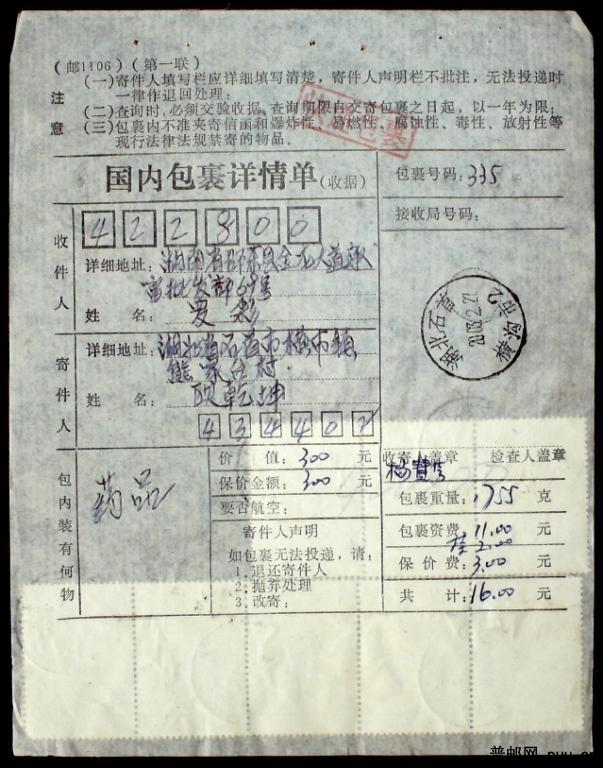 (邮1106)(第一联)
注意
(一)寄件人填写栏应详细填写清楚，寄件人声明栏不批注，无法投递时
一律作退回处理；
(二)查询时，必须交验收据，查询期限自交寄包裹之日起，以一年为限；
(三)包裹内不准夹寄信函和爆炸性、易燃性、腐蚀性、毒性、放射性等
现行法律法规禁寄的物品。
国内包裹详情单(收据)
包裹号码：335
接收局号码：
收件人
422800
详细地址：湖南省邵东县金龙大道
姓 名：爱
寄件人
详细地址：湖北省石首市梅市镇
熊家台村
姓 名：乾坤
434402
湖北石首
横沟市
包内装有何物
药品
价 值：300 元
保价金额：300 元
要否航空：
寄件人声明
如包裹无法投递，请：
1.退还寄件人
2.抛弃处理
3.改寄：
收寄人盖章
杨
检查人盖章
包裹重量：1755 克
包裹资费：11.00 元
挂2.00
保 价 费：3.00 元
共 计：16.00 元
普邮网